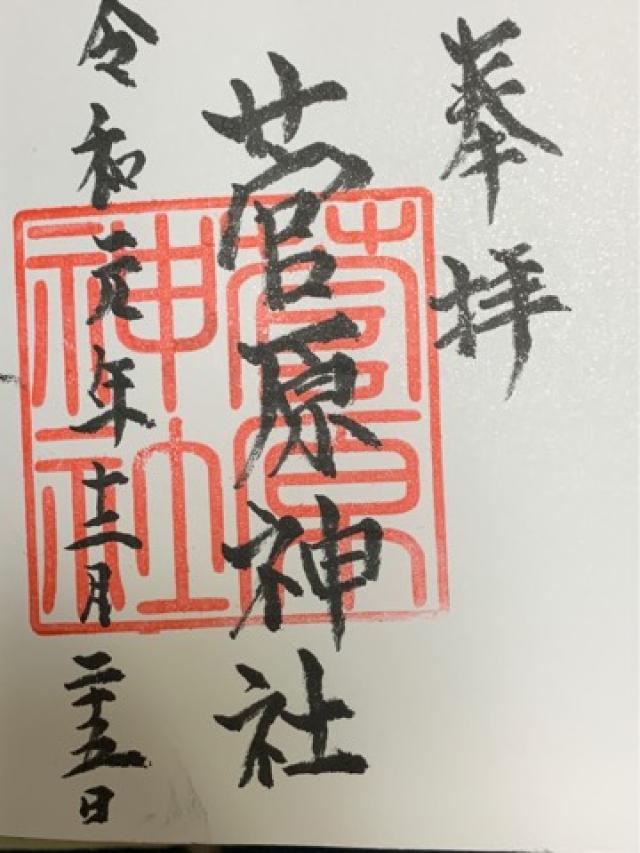 奉拝
菅原神社
菅原神社
令和元年十二月二十五日